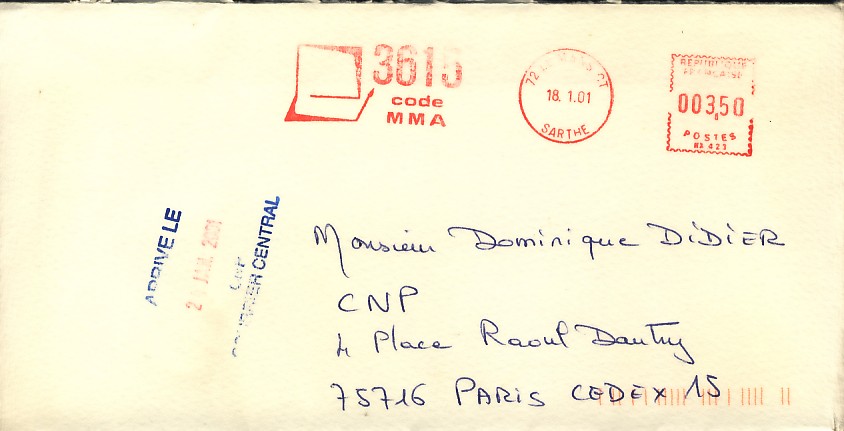 3615
code
MMA
72 LE MANS CT
18. 1.01
SARTHE
REPUBLIQUE
FRANCAISE
003,50
POSTES
ARRIVE LE
JAN. 2001
CNP
COURRIER CENTRAL
Monsieur Dominique DiDiER
CNP
4 Place Raoul Dautry
75716 PARIS CEDEX 15